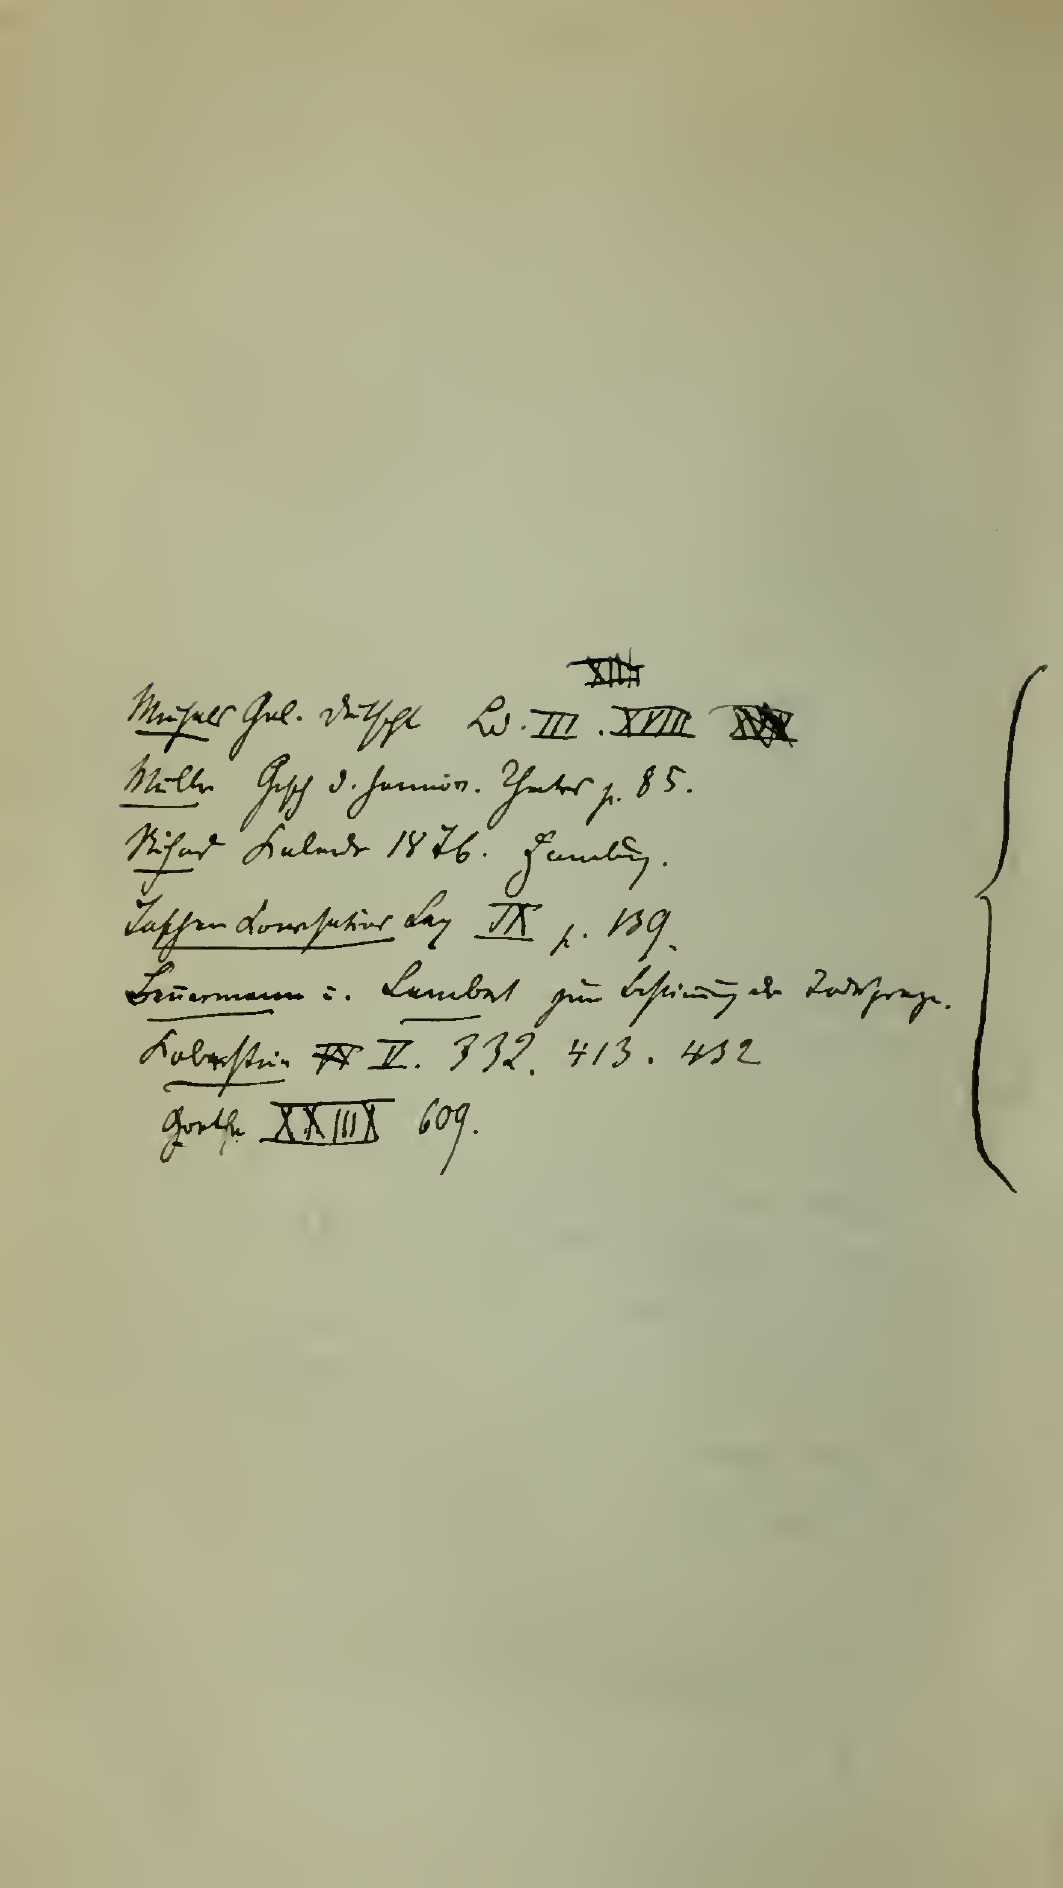 Meusels Gel. Dutschl Bd. III. XVIII
Müller Gesch d. hannöv. Theater p. 85.
Richard Kalender 1876. Hamburg.
Taschen Conversations Lex IX p. 139.
Beuermann u. Lambert zur Bestimmung der
Koberstein IV. 332. 413. 432
Goethe XXIIIX 609.